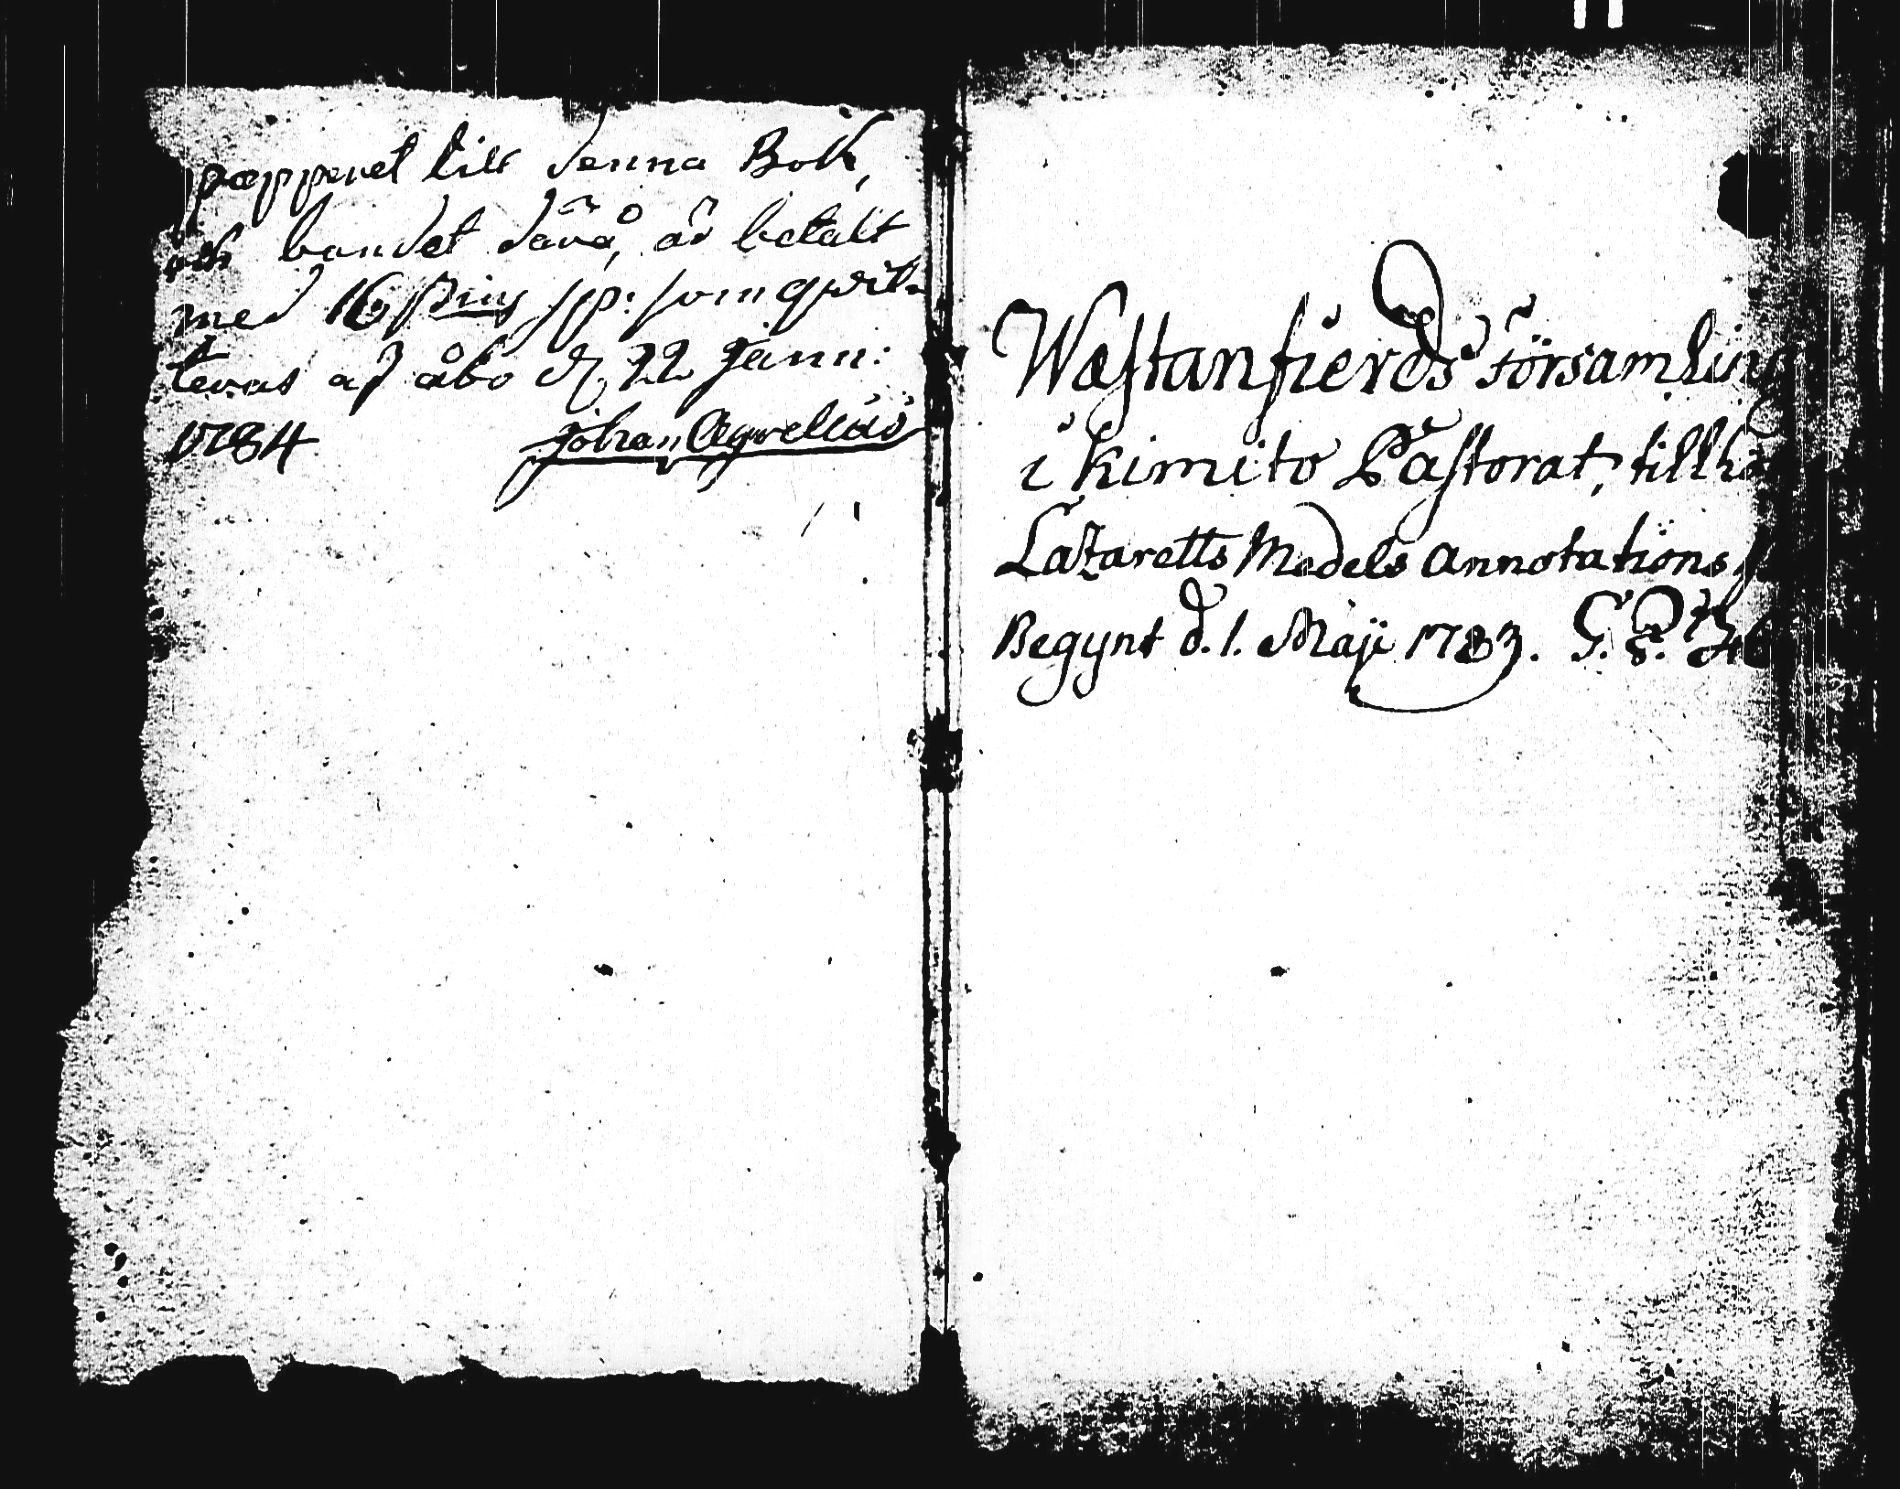 papperet till denna Bok,
och bandet därå, är betalt
med 16 sp: som qwit-
teras af åbo d 22 Janu:
1784 Johan Agrelius
Westanfierds Församling
i Kimito Pastorat,
Lazaretts Medels Annotations
Begynt d. 1. Maji 1783.